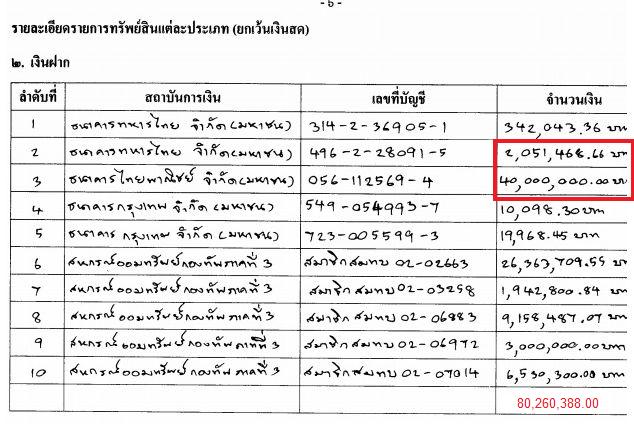 - ๖ -
รายละเอียดรายการทรัพย์สินแต่ละประเภท (ยกเว้นเงินสด)
๒. เงินฝาก
ลำดับที่ สถาบันการเงิน เลขที่บัญชี จำนวนเงิน
1 ธนาคารทหารไทย จำกัด (มหาชน) 314-2-36905-1 342,043.36 บาท
2 ธนาคารทหารไทย จำกัด (มหาชน) 496-2-28091-5 2,051,468.66 บาท
3 ธนาคารไทยพาณิชย์ จำกัด (มหาชน) 056-112569-4 40,000,000.00 บา
4 ธนาคารกรุงเทพ จำกัด (มหาชน) 549-054993-7 10,098.30 บาท
5 ธนาคาร กรุงเทพ จำกัด (มหาชน) 723-005599-3 19,968.45 บาท
6 สหกรณ์ออมทรัพย์กองทัพภาคที่ 3 สมาชิกสมทบ 02-02663 26,363,709.55 บาท
7 สหกรณ์ออมทรัพย์กองทัพภาคที่ 3 สมาชิกสมทบ 02-03258 1,942,800.84 บาท
8 สหกรณ์ออมทรัพย์กองทัพภาคที่ 3 สมาชิกสมทบ 02-06883 9,158,487.07 บาท
9 สหกรณ์ออมทรัพย์กองทัพภาคที่ 3 สมาชิกสมทบ 02-06972 3,000,000.00 บาท
10 สหกรณ์ออมทรัพย์กองทัพภาคที่ 3 สมาชิกสมทบ 02-07014 6,530,300.00 บาท
80,260,388.00